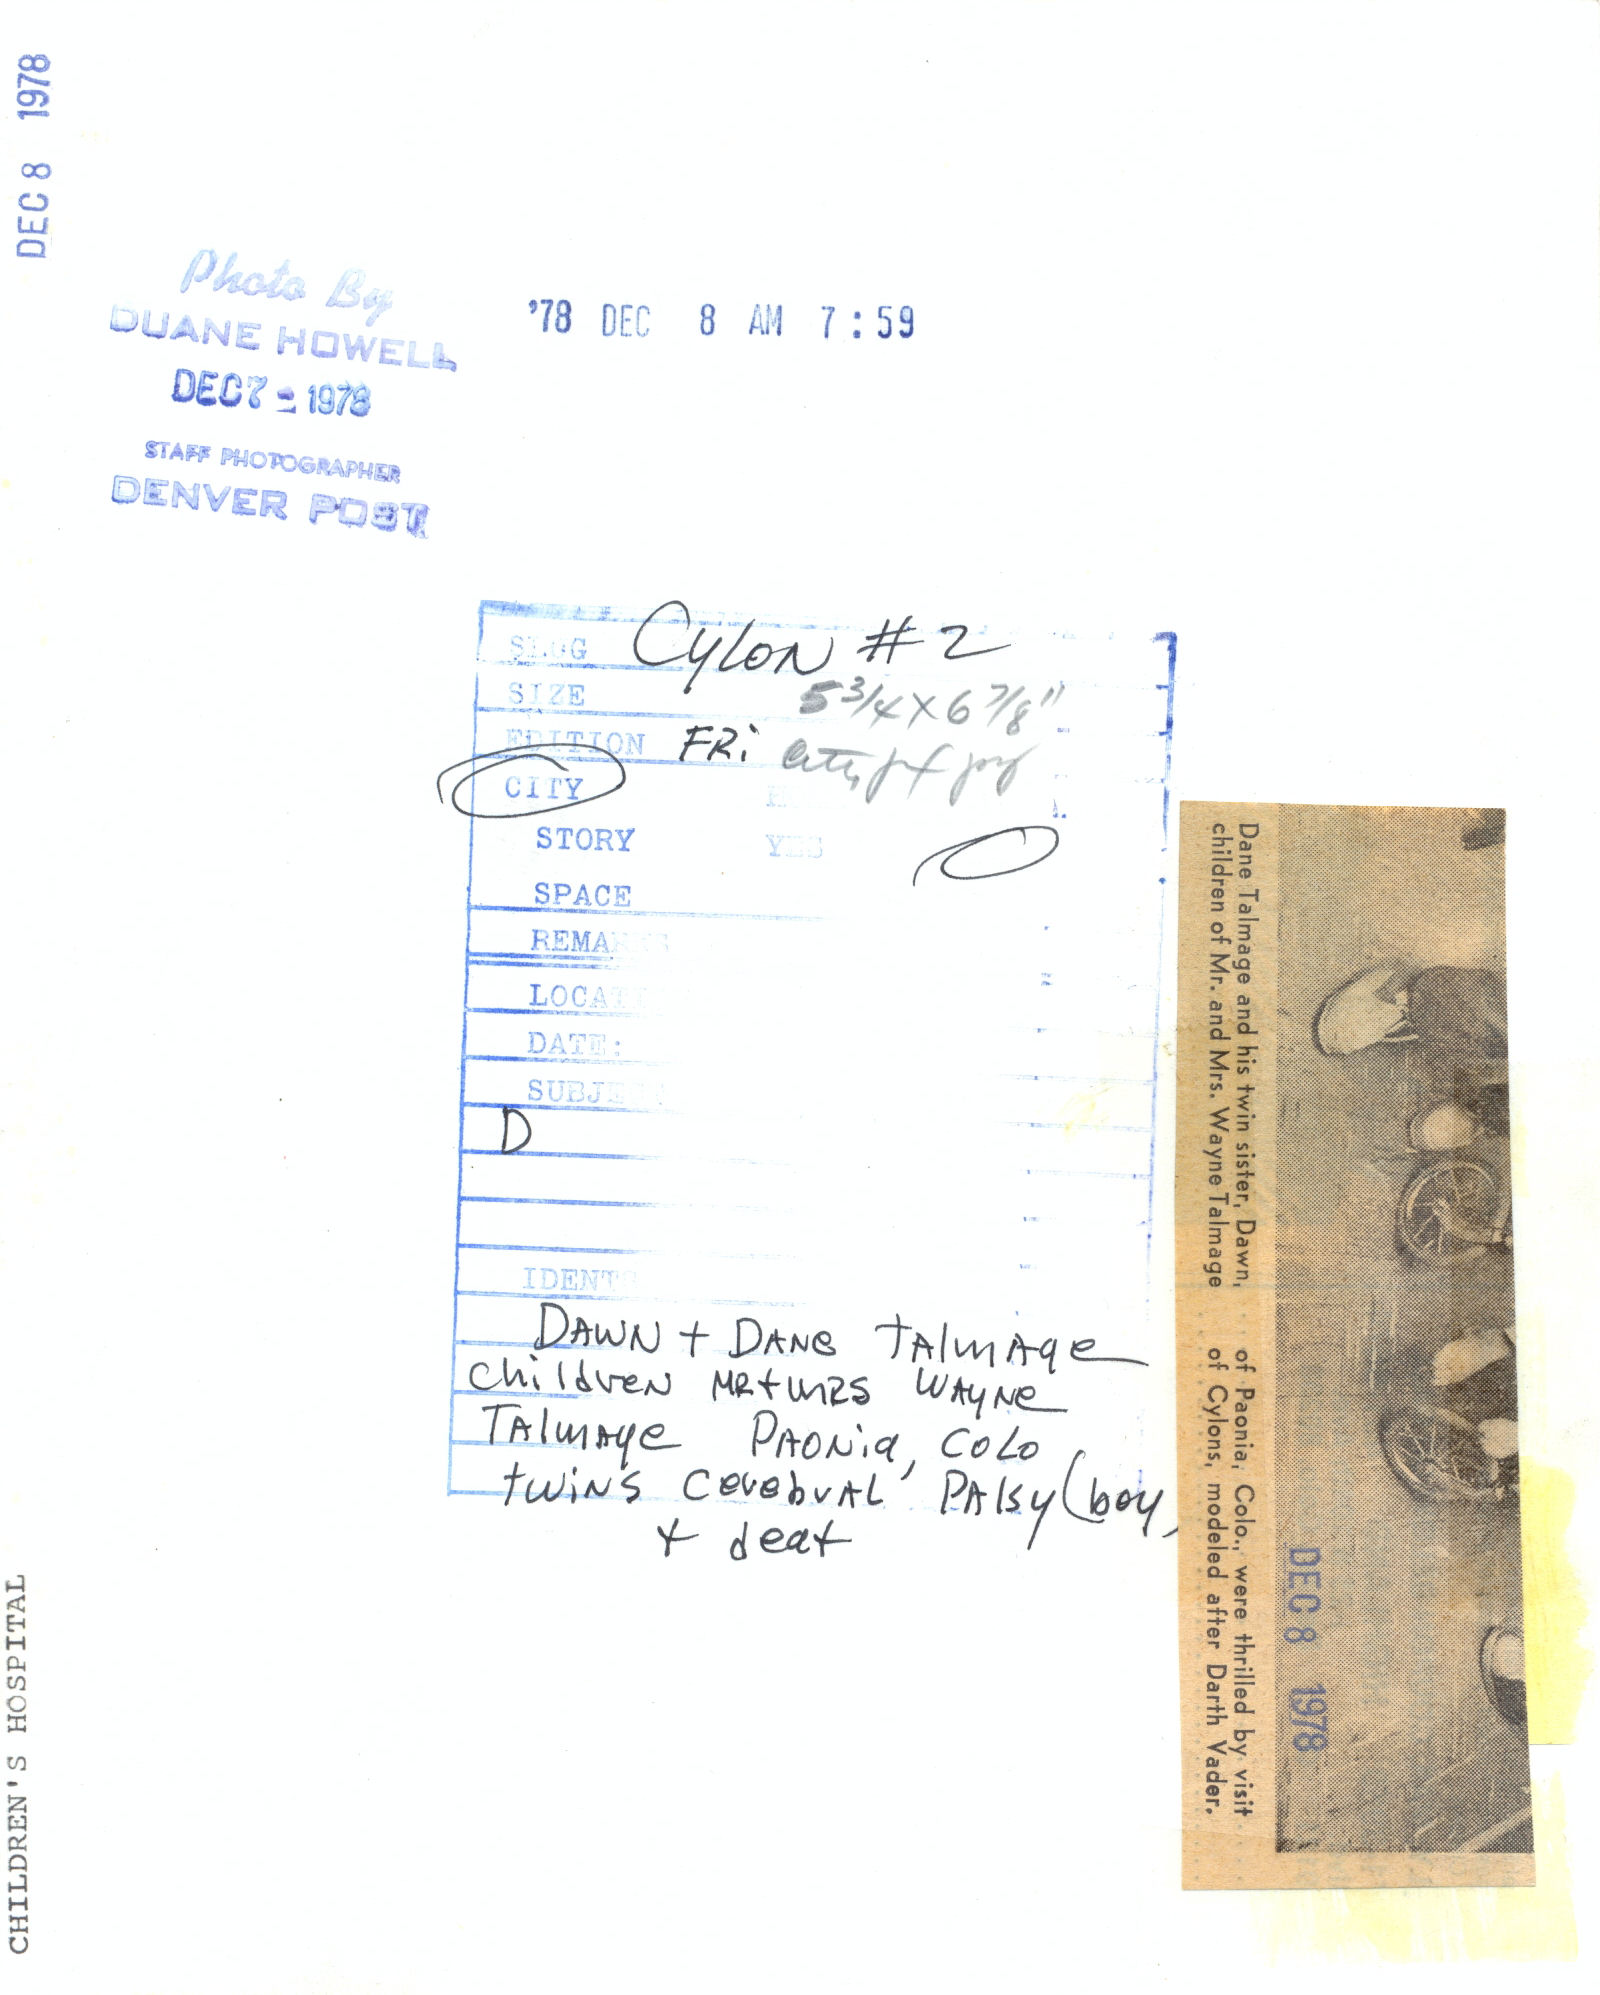 DEC 8 1978
Photo By
DUANE HOWELL
DEC 7 - 1978
STAFF PHOTOGRAPHER
DENVER POST
'78 DEC 8 AM 7:59
SLUG Cylon #2
SIZE 5 3/4 x 6 7/8"
EDITION FRi
CITY
STORY YES
SPACE
REMARKS
LOCATI
DATE:
SUBJE
D
IDENTS
DAWN + DANE TAlmAge
children MR+MRS WAYNE
TAlmAge PAONia, COLO
twiNS cerebrAL PAlsy (boy)
+ deaf
Dane Talmage and his twin sister, Dawn,
children of Mr. and Mrs. Wayne Talmage
of Paonia, Colo., were thrilled by visit
of Cylons, modeled after Darth Vader.
DEC 8 1978
CHILDREN'S HOSPITAL